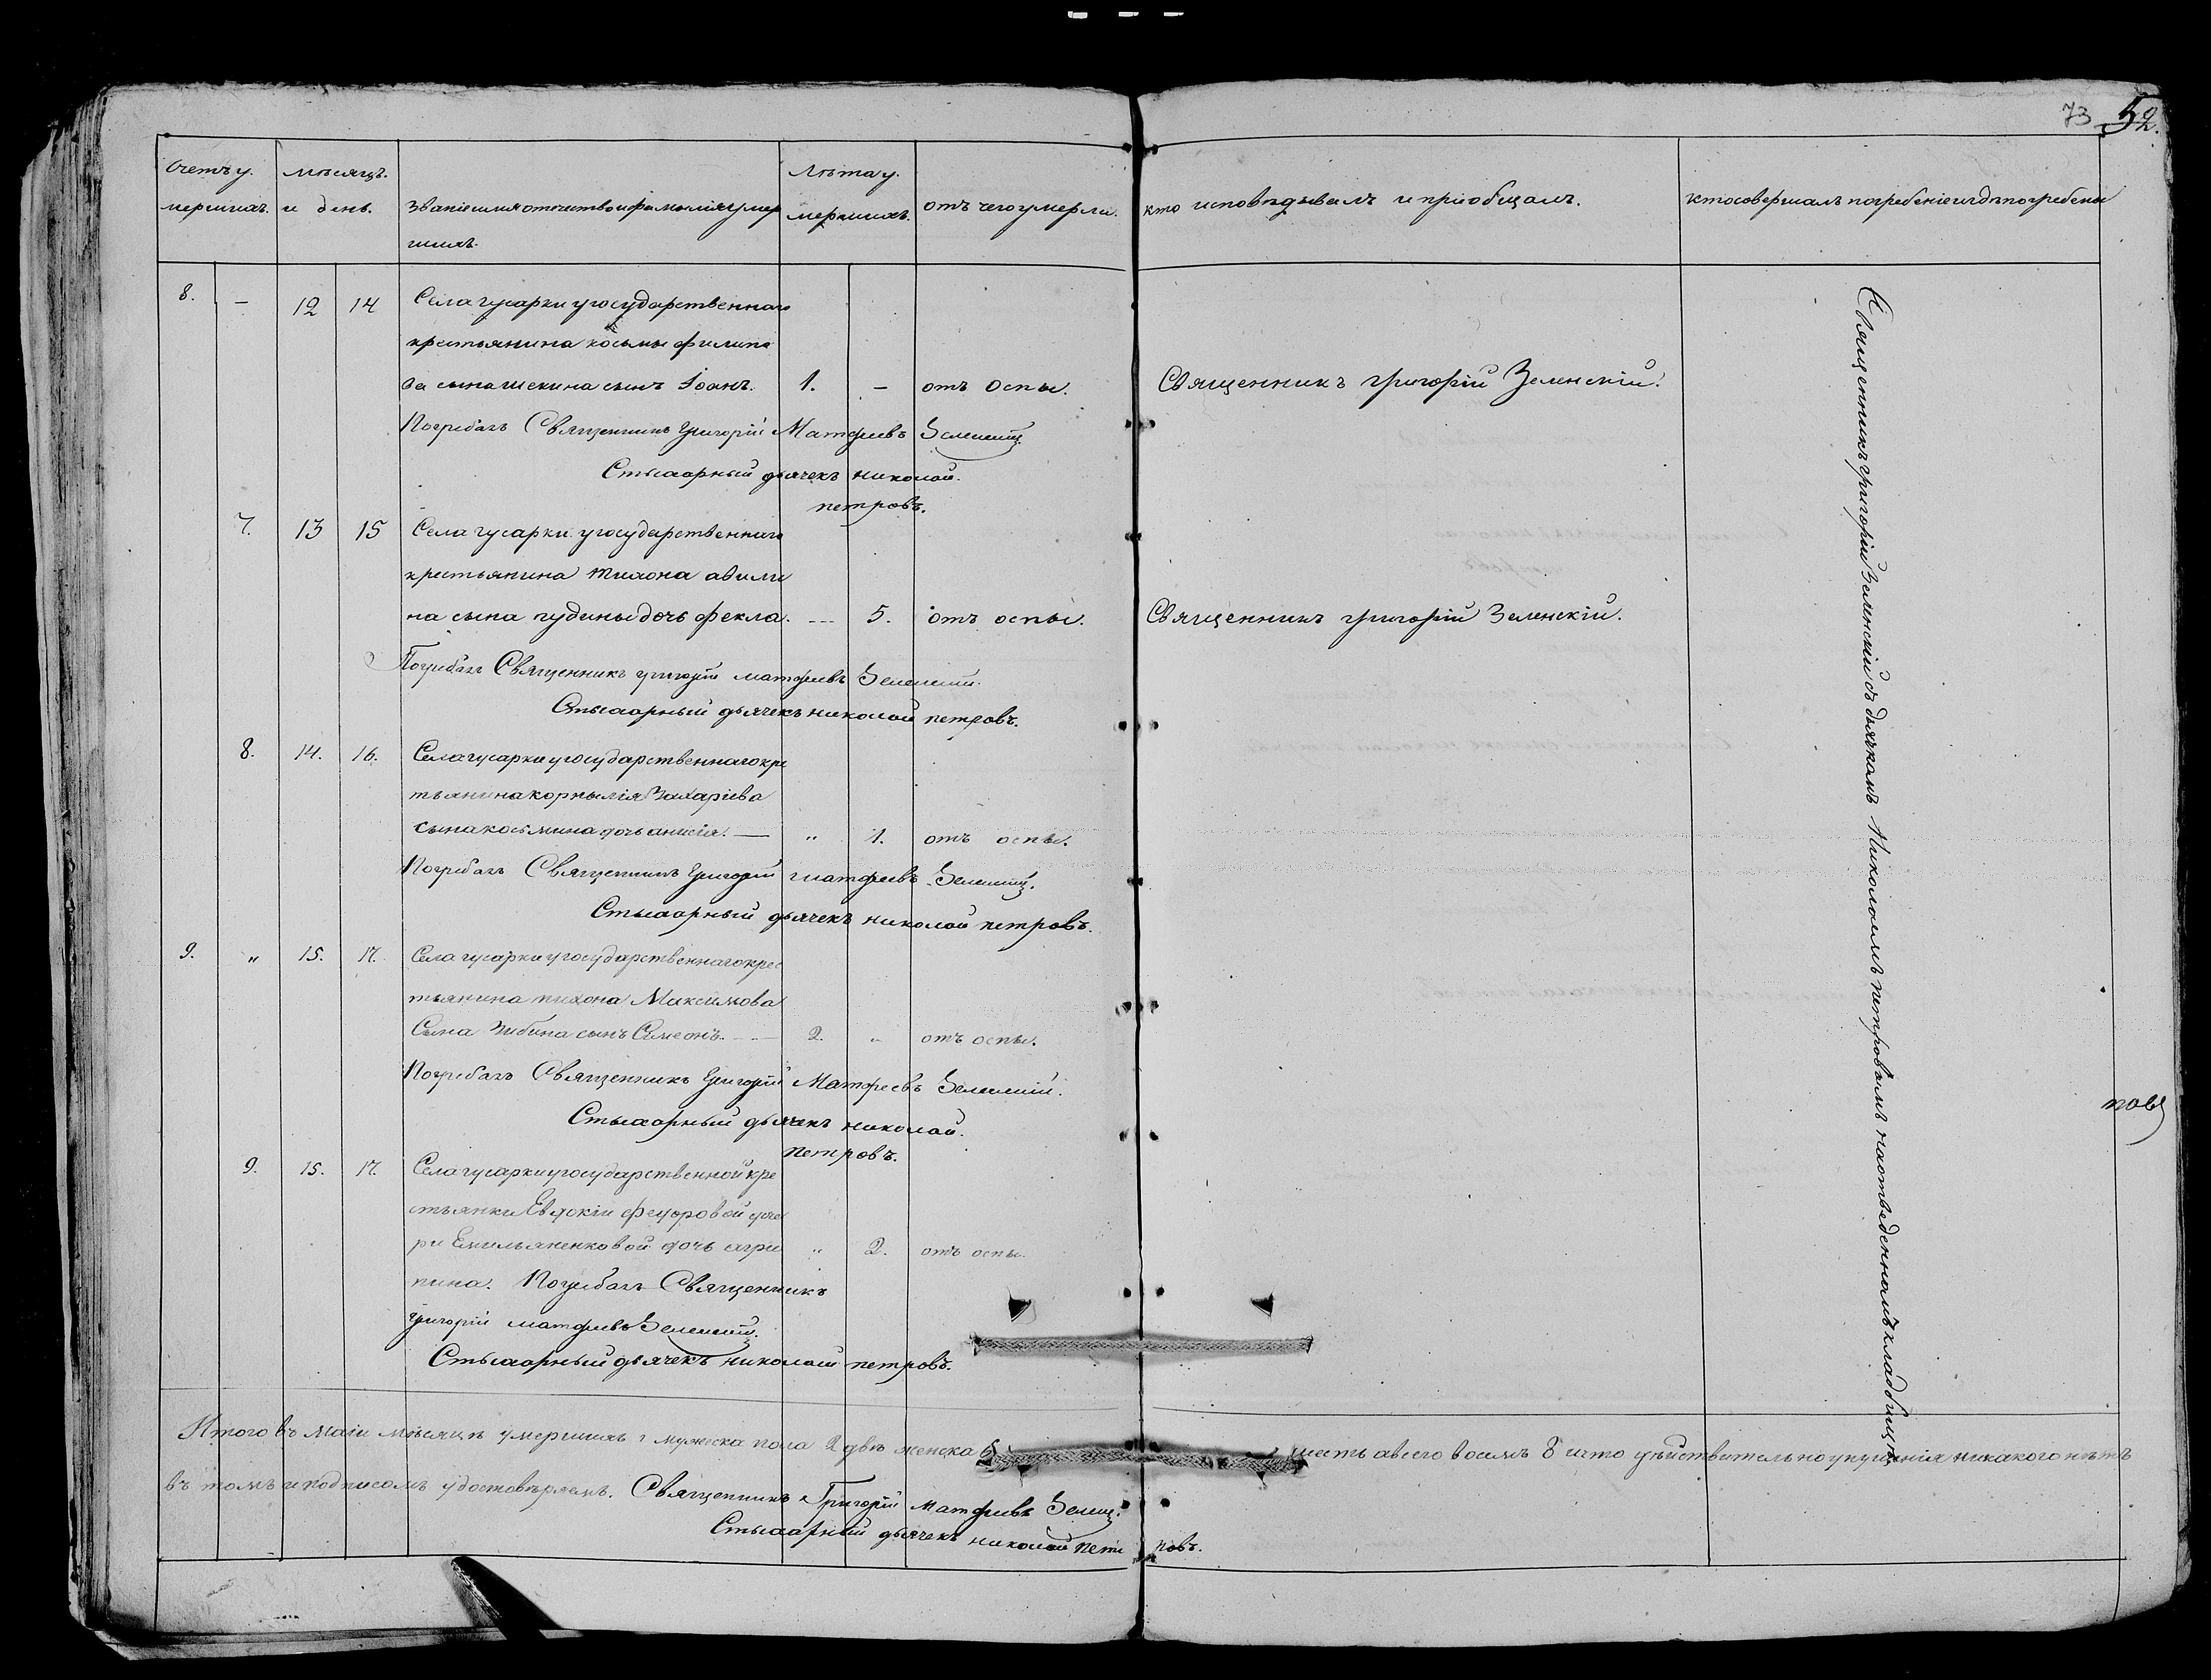 73 52.
Счетъ у-
мершихъ.
мѣсяцъ.
и день.
Званіе имя отечество и фамилія умер
шихъ.
Лѣта у-
мершихъ.
отъ чего умерли.
кто исповѣдывалъ и пріобщалъ.
кто совершалъ погребеніе и гдѣ погребены
8. — 12 14 Села гусарки у государственнаго
крестьянина косьмы филипо
ва сына шекина сынъ Іоанъ. 1. — отъ оспы. Священникъ григорій Зеленскій.
Погребалъ Священникъ Григорій Матфиевъ Зеленскій
Стихарный дьячекъ николай
петровъ.
7. 13 15 Села гусарки у государственнаго
крестьянина тихона авили
на сына гудины дочь фекла. — 5. отъ оспы. Священникъ григорій Зеленскій.
Погребалъ Священникъ григорій матфиевъ Зеленскій.
Стихарный дьячекъ николай петровъ.
8. 14. 16. Села гусарки у государственнаго кре
тьянина корнилія Захаріева
сына косьмина дочь анисія. — " 1. отъ оспы.
Погребалъ Священникъ Григорій матфиевъ Зеленскій.
Стихарный дьячекъ николай петровъ.
9. " 15. 17. Села гусарки у государственнаго крес
тьянина тихона Максимова
Сына Зибина сынъ Симеонъ. — 2. " отъ оспы.
Погребалъ Священникъ Григорій Матфеевъ Зеленскій.
Стихарный дьячекъ николай.
петровъ.
9. 15. 17. Села гусарки у государственной кре
стьянки Евдокіи федоровой доче
ри Емильяненковой дочь агри " 2. отъ оспы.
пина. Погребалъ Священникъ
григорій матфиевъ Зеленскій.
Стихарный дьячекъ николай петровъ.
Священникъ григорій Зеленскій съ дьячкомъ Николаемъ петровымъ на отведенномъ кладбищѣ
Итого въ маіи месяцѣ умершихъ мужеска пола 2 двѣ женска 6 шесть а всего восемъ 8 и что дѣйствительно упущенія никакого нѣтъ
въ томъ и подписомъ удостовѣряемъ. Священникъ Григорій матфиевъ Зеленс.
Стихарный дьячекъ николай пет повъ.